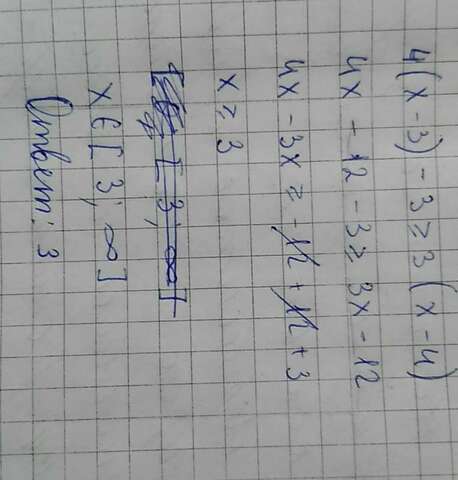 4(x-3)-3≥3(x-4)
4x-12-3≥3x-12
4x-3x≥-12+12+3
x≥3
[3;∞]
x∈[3;∞]
Ответ: 3